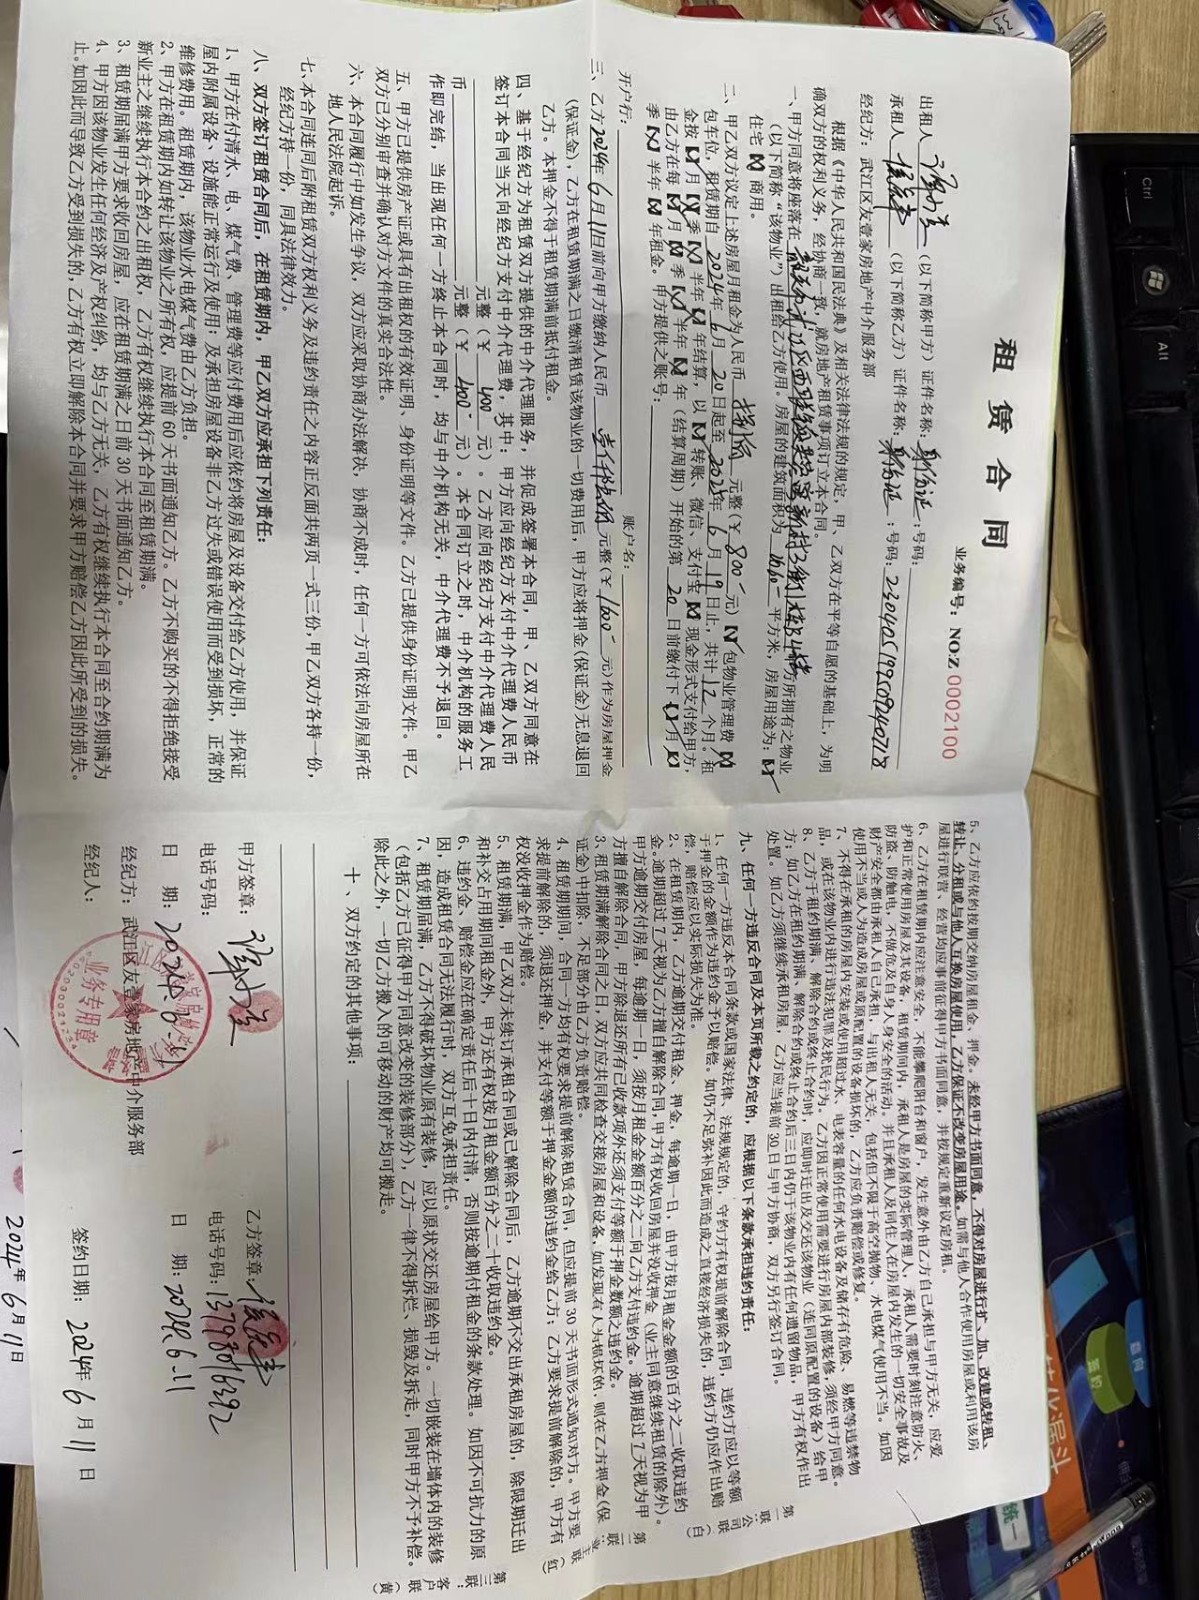 租赁合同
业务编号：NO:Z 0002100
出租人 （以下简称甲方）证件名称：身份证 ：号码：
承租人 （以下简称乙方）证件名称：身份证 ：号码：
经纪方：武江区友壹家房地产中介服务部
根据《中华人民共和国民法典》及相关法律法规的规定，甲、乙双方在平等自愿的基础上，为明
确双方的权利义务，经协商一致，就房地产租赁事项订立本合同。
一、甲方同意将座落在 方所拥有之物业
（以下简称“该物业”）出租给乙方使用。房屋的建筑面积为 平方米，房屋用途为：
住宅 商用。
二、甲乙双方议定上述房屋月租金为人民币 捌佰 元整（￥800- 元） 包物业管理费
包车位，租赁期自 2024年 6月 20日起至 2025年 6月 19日止，共计 12 个月。租
金按 月 季 半年 年结算，以 转账、微信、支付宝 现金形式支付给甲方，
由乙方在每 月 季 半年 年（结算周期）开始的第 20 日前缴付下 月
季 半年 年租金。甲方提供之账号：
开户行： 账户名：
三、乙方2024年6月11日前向甲方缴纳人民币 壹仟陆佰 元整（￥1600- 元）作为房屋押金
（保证金），乙方在租赁期满之日缴清租赁该物业的一切费用后，甲方应将押金（保证金）无息退回
乙方。本押金不得于租赁期满前抵付租金。
四、基于经纪方为租赁双方提供的中介代理服务，并促成签署本合同，甲、乙双方同意在
签订本合同当天向经纪方支付中介代理费，其中：甲方应向经纪方支付中介代理费人民币
元整（￥ 400- 元）。乙方应向经纪方支付中介代理费人民
币 元整（￥ 400- 元）。本合同订立之时，中介机构的服务工
作即完结，当出现任何一方终止本合同时，均与中介机构无关，中介代理费不予退回。
五、甲方已提供房产证或具有出租权的有效证明、身份证明等文件。乙方已提供身份证明文件。甲乙
双方已分别审查并确认对方文件的真实合法性。
六、本合同履行中如发生争议，双方应采取协商办法解决，协商不成时，任何一方可依法向房屋所在
地人民法院起诉。
七、本合同连同后附租赁双方权利义务及违约责任之内容正反面共两页一式三份，甲乙双方各持一份，
经纪方持一份，同具法律效力。
八、双方签订租赁合同后，在租赁期内，甲乙双方应承担下列责任：
1、甲方在付清水、电、煤气费、管理费等应付费用后应依约将房屋及设备交付给乙方使用，并保证
屋内附属设备、设施能正常运行及使用；及承担房屋设备非乙方过失或错误使用而受到损坏，正常的
维修费用。租赁期内，该物业水电煤气费由乙方负担。
2、甲方在租赁期内如转让该物业之所有权，应提前60天书面通知乙方。乙方不购买的不得拒绝接受
新业主之继续执行本合约之出租权，乙方有权继续执行本合同至租赁期满。
3、租赁期届满甲方要求收回房屋，应在租赁期满之日前30天书面通知乙方。
4、甲方因该物业发生任何经济及产权纠纷，均与乙方无关，乙方有权继续执行本合同至合约期满为
止。如因此而导致乙方受到损失的，乙方有权立即解除本合同并要求甲方赔偿乙方因此所受到的损失。
5、乙方应依约按期交纳房屋租金、押金。未经甲方书面同意，不得对房屋进行扩、加、改建或转租、
转让、分租或与他人互换房屋使用，乙方保证不改变房屋用途。如需与他人合作使用房屋或利用该房
屋进行联营、经营均应事前征得甲方书面同意，并按规定重新议定房租。
6、乙方在租赁期内应注意安全，不能攀爬阳台和窗户，发生意外由乙方自己承担与甲方无关，应爱
护和正常使用房屋及其设备，租赁期间内，承租人是房屋的实际管理人，承租人需要时刻注意防火、
防盗、防触电，不做危及自身人身安全的活动。并且承租人及同住人在房屋内发生的一切安全事故及
财产安全都由承租人自己承担，与出租人无关，包括但不限于高空抛物、水电煤气使用不当。如因
使用不当或人为造成房屋或原配置的设备损坏的，乙方应负责赔偿或修复。
7、不得在承租的房屋内安装或使用超过水、电表容量的任何水电设备及储存有危险、易燃等违禁物
品，或在该物业内进行违法犯罪及扰民行为。乙方因正常使用需要进行房屋内部装修，须经甲方同意。
8、乙方于租约期满、解除合约或终止合约时，应即时迁出及交还该物业（连同原配置的设备）给甲
方；如乙方在租约期满、解除合约或终止合约后三日内仍于该物业内有任何遗留物品，甲方有权作出
处置。如乙方须继续承租房屋，乙方应当提前30日与甲方协商，双方另行签订合同。
九、任何一方违反合同及本页所载之约定的，应根据以下条款承担违约责任：
1、任何一方违反本合同条款或国家法律、法规规定的，守约方有权提前解除合同，违约方应以等额
于押金的金额作为违约金予以赔偿。如仍不足弥补因此而造成之直接经济损失的，违约方仍应作出赔
偿，赔偿应以实际损失为准。
2、在租赁期内，乙方逾期交付租金、押金，每逾期一日，由甲方按月租金金额的百分之二收取违约
金。逾期超过7天视为乙方擅自解除合同，甲方有权收回房屋并没收押金（业主同意继续租赁的除外）。
甲方逾期交付房屋，每逾期一日，须按月租金金额百分之二向乙方支付违约金。逾期超过7天视为甲
方擅自解除合同，甲方除退还所有已收款项外还须支付等额于押金数额之违约金。
3、租赁期满解除合同之日，双方应共同检查交接房屋和设备，如发现有人为损坏的，则在乙方押金（保
证金）中扣除，不足部分由乙方负责赔偿。
4、租赁期期间，合同一方均有权要求提前解除租赁合同，但应提前30天书面形式通知对方。甲方要
求提前解除的，须退还押金，并支付等额于押金金额的违约金给乙方；乙方要求提前解除的，甲方有
权没收押金作为赔偿。
5、租赁期满，甲乙双方未续订承租合同或已解除合同后，乙方逾期不交出承租房屋的，除限期迁出
和补交占用期间租金外，甲方还有权按月租金额百分之二十收取违约金。
6、违约金、赔偿金应在确定责任后十日内付清，否则按逾期付租金的条款处理。如因不可抗力的原
因，造成租赁合同无法履行时，双方互免承担责任。
7、租赁期届满，乙方不得破坏物业原有装修，应以原状交还房屋给甲方。一切嵌装在墙体内的装修
（包括乙方已征得甲方同意改变的装修部分），乙方一律不得拆烂、损毁及拆走，同时甲方不予补偿。
除此之外，一切乙方搬入的可移动的财产均可搬走。
十、双方约定的其他事项：
甲方签章： 乙方签章：
电话号码： 电话号码：13798016392
日 期：2024.6.11 日 期：2024.6.11
经纪方：武江区友壹家房地产中介服务部
经纪人： 签约日期：2024年6月11日
业务专用章
第一联：公司联（白）
第二联：业主联（红）
第三联：客户联（黄）
2024年6月11日
Ctrl
Alt